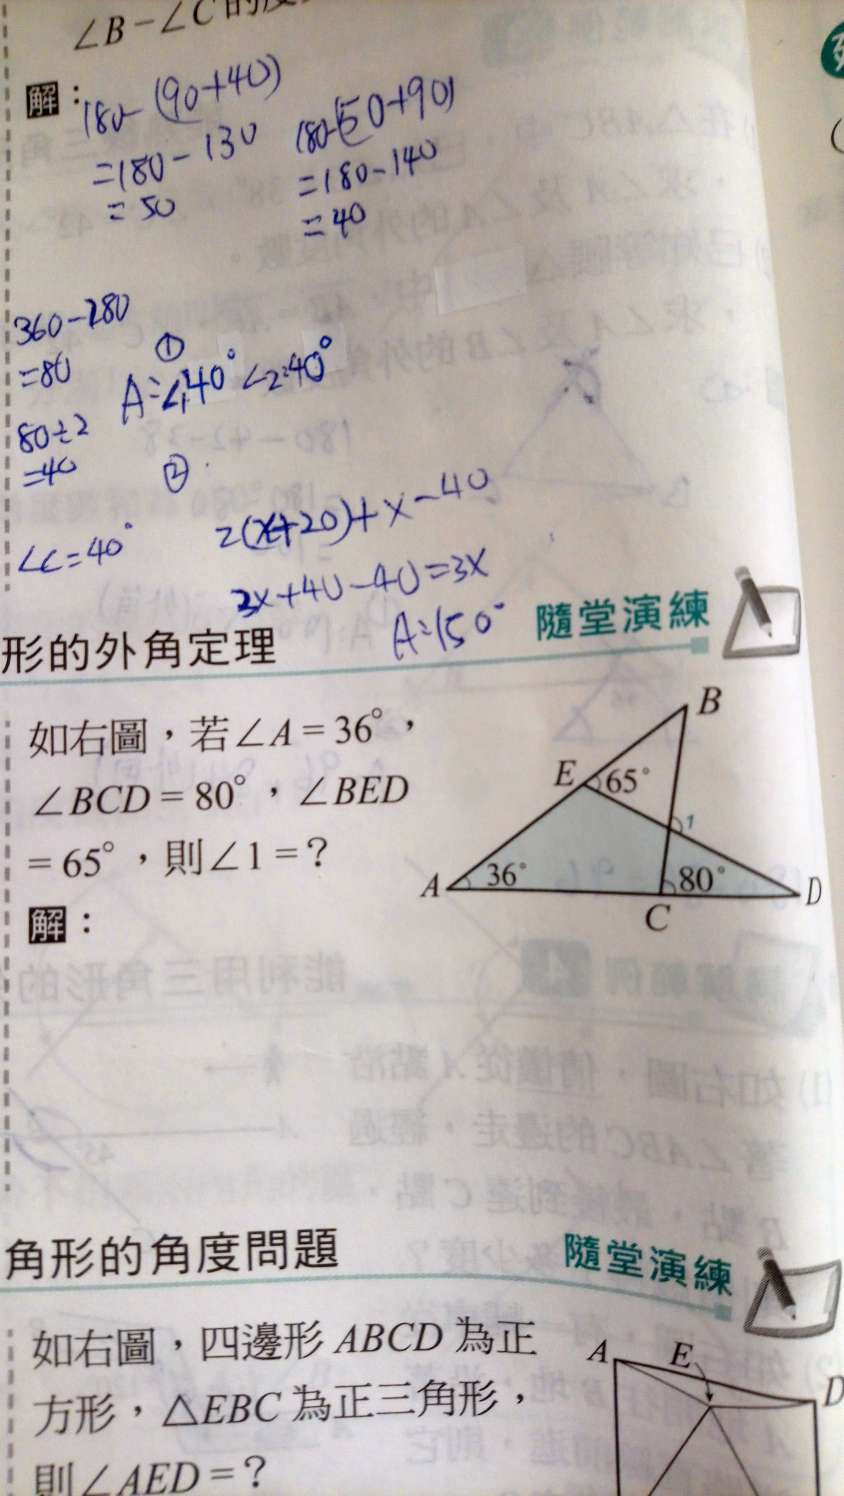 ∠B－∠C 的度
解：
180-(90+40)
=180-130
=50
180-(50+90)
=180-140
=40
360-280
=80
80÷2
=40
∠C=40°
①
A:∠1:40° ∠2:40°
②
2(x+20)+x-40
2x+40-40=3x
A:150°
形的外角定理
隨堂演練
如右圖，若∠A＝36°，
∠BCD＝80°，∠BED
＝65°，則∠1＝？
解：
B
E 65°
1
A 36° 80° D
C
角形的角度問題
隨堂演練
如右圖，四邊形 ABCD 為正
方形，△EBC 為正三角形，
則∠AED＝？
A E D